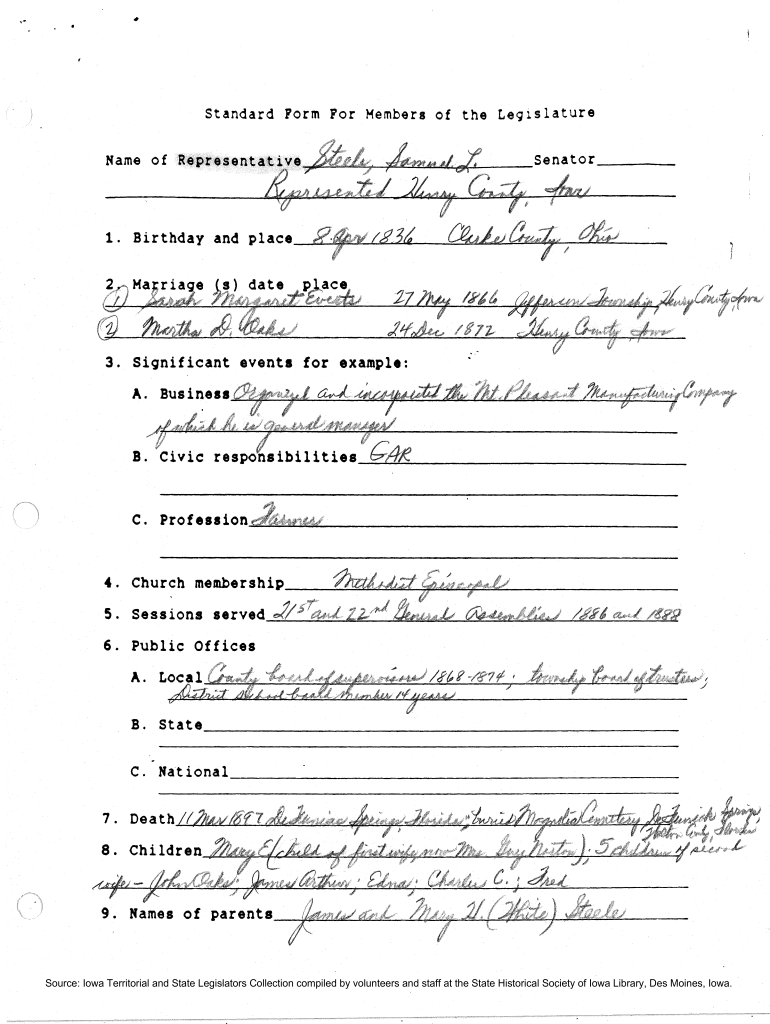 Standard Form For Members of the Legislature
Name of Representative Steele, Samuel L. Senator
Represented Henry County, Iowa
1. Birthday and place 8 Apr 1836 Clarke County, Ohio
2. Marriage (s) date place
① Sarah Margaret Everts 27 May 1866 Jefferson Township, Henry County Iowa
② Martha D. Oaks 24 Dec 1872 Henry County, Iowa
3. Significant events for example:
A. Business Organized and incorporated the Mt. Pleasant Manufacturing Company
of which he is general manager
B. Civic responsibilities GAR
C. Profession Farmer
4. Church membership Methodist Episcopal
5. Sessions served 21st and 22nd General Assemblies 1886 and 1888
6. Public Offices
A. Local County board of supervisors 1868-1874; township board of trustees;
District school board member 14 years
B. State
C. National
7. Death 11 Mar 1897 DeFuniac Springs, Florida; buried Magnolia Cemetery, DeFuniak Springs,
County, Florida
8. Children Mary E (child of first wife now Mrs. Guy Norton); 5 children of second
wife - John Oaks; James Arthur; Edna; Charles C.; Fred
9. Names of parents James and Mary H. (White) Steele
Source: Iowa Territorial and State Legislators Collection compiled by volunteers and staff at the State Historical Society of Iowa Library, Des Moines, Iowa.